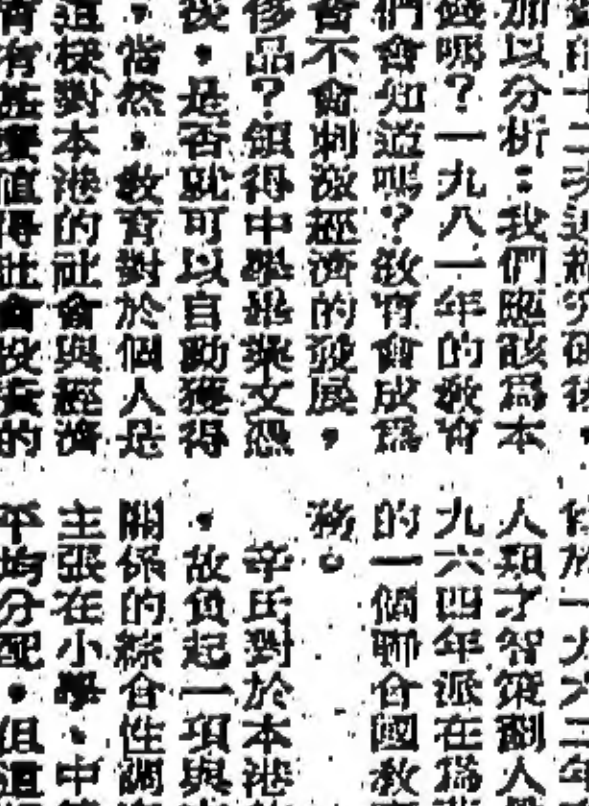 加以分析：我們應該爲本
變嗎？一九八一年的教育
們會知道嗎？教育會成爲
會不會刺激經濟的發展，
侈品？領得中學畢業文憑
後，是否就可以自動獲得
，當然，教育對於個人是
這樣對本港的社會與經濟
有甚麼值得社會投資的
於一九六二年
人類才智策劃人
九六四年派在爲
的一個聯合國教
務。
辛氏對於本港
，故負起一項與
關係的綜合性調
主張在小學、中
平均分配，但這